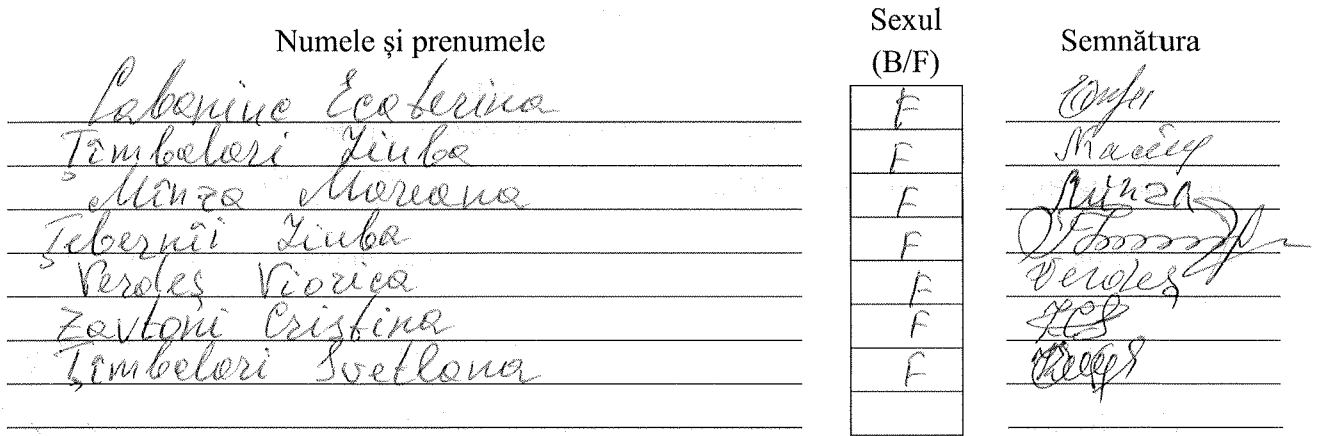 Numele și prenumele Sexul (B/F) Semnătura
Ecaterina F
Țîmbalari Liuba F
Mînza F Mînza
Liuba F
Verdeș Viorica F Verdeș
Zavtoni Cristina F
Țîmbalari Svetlana F